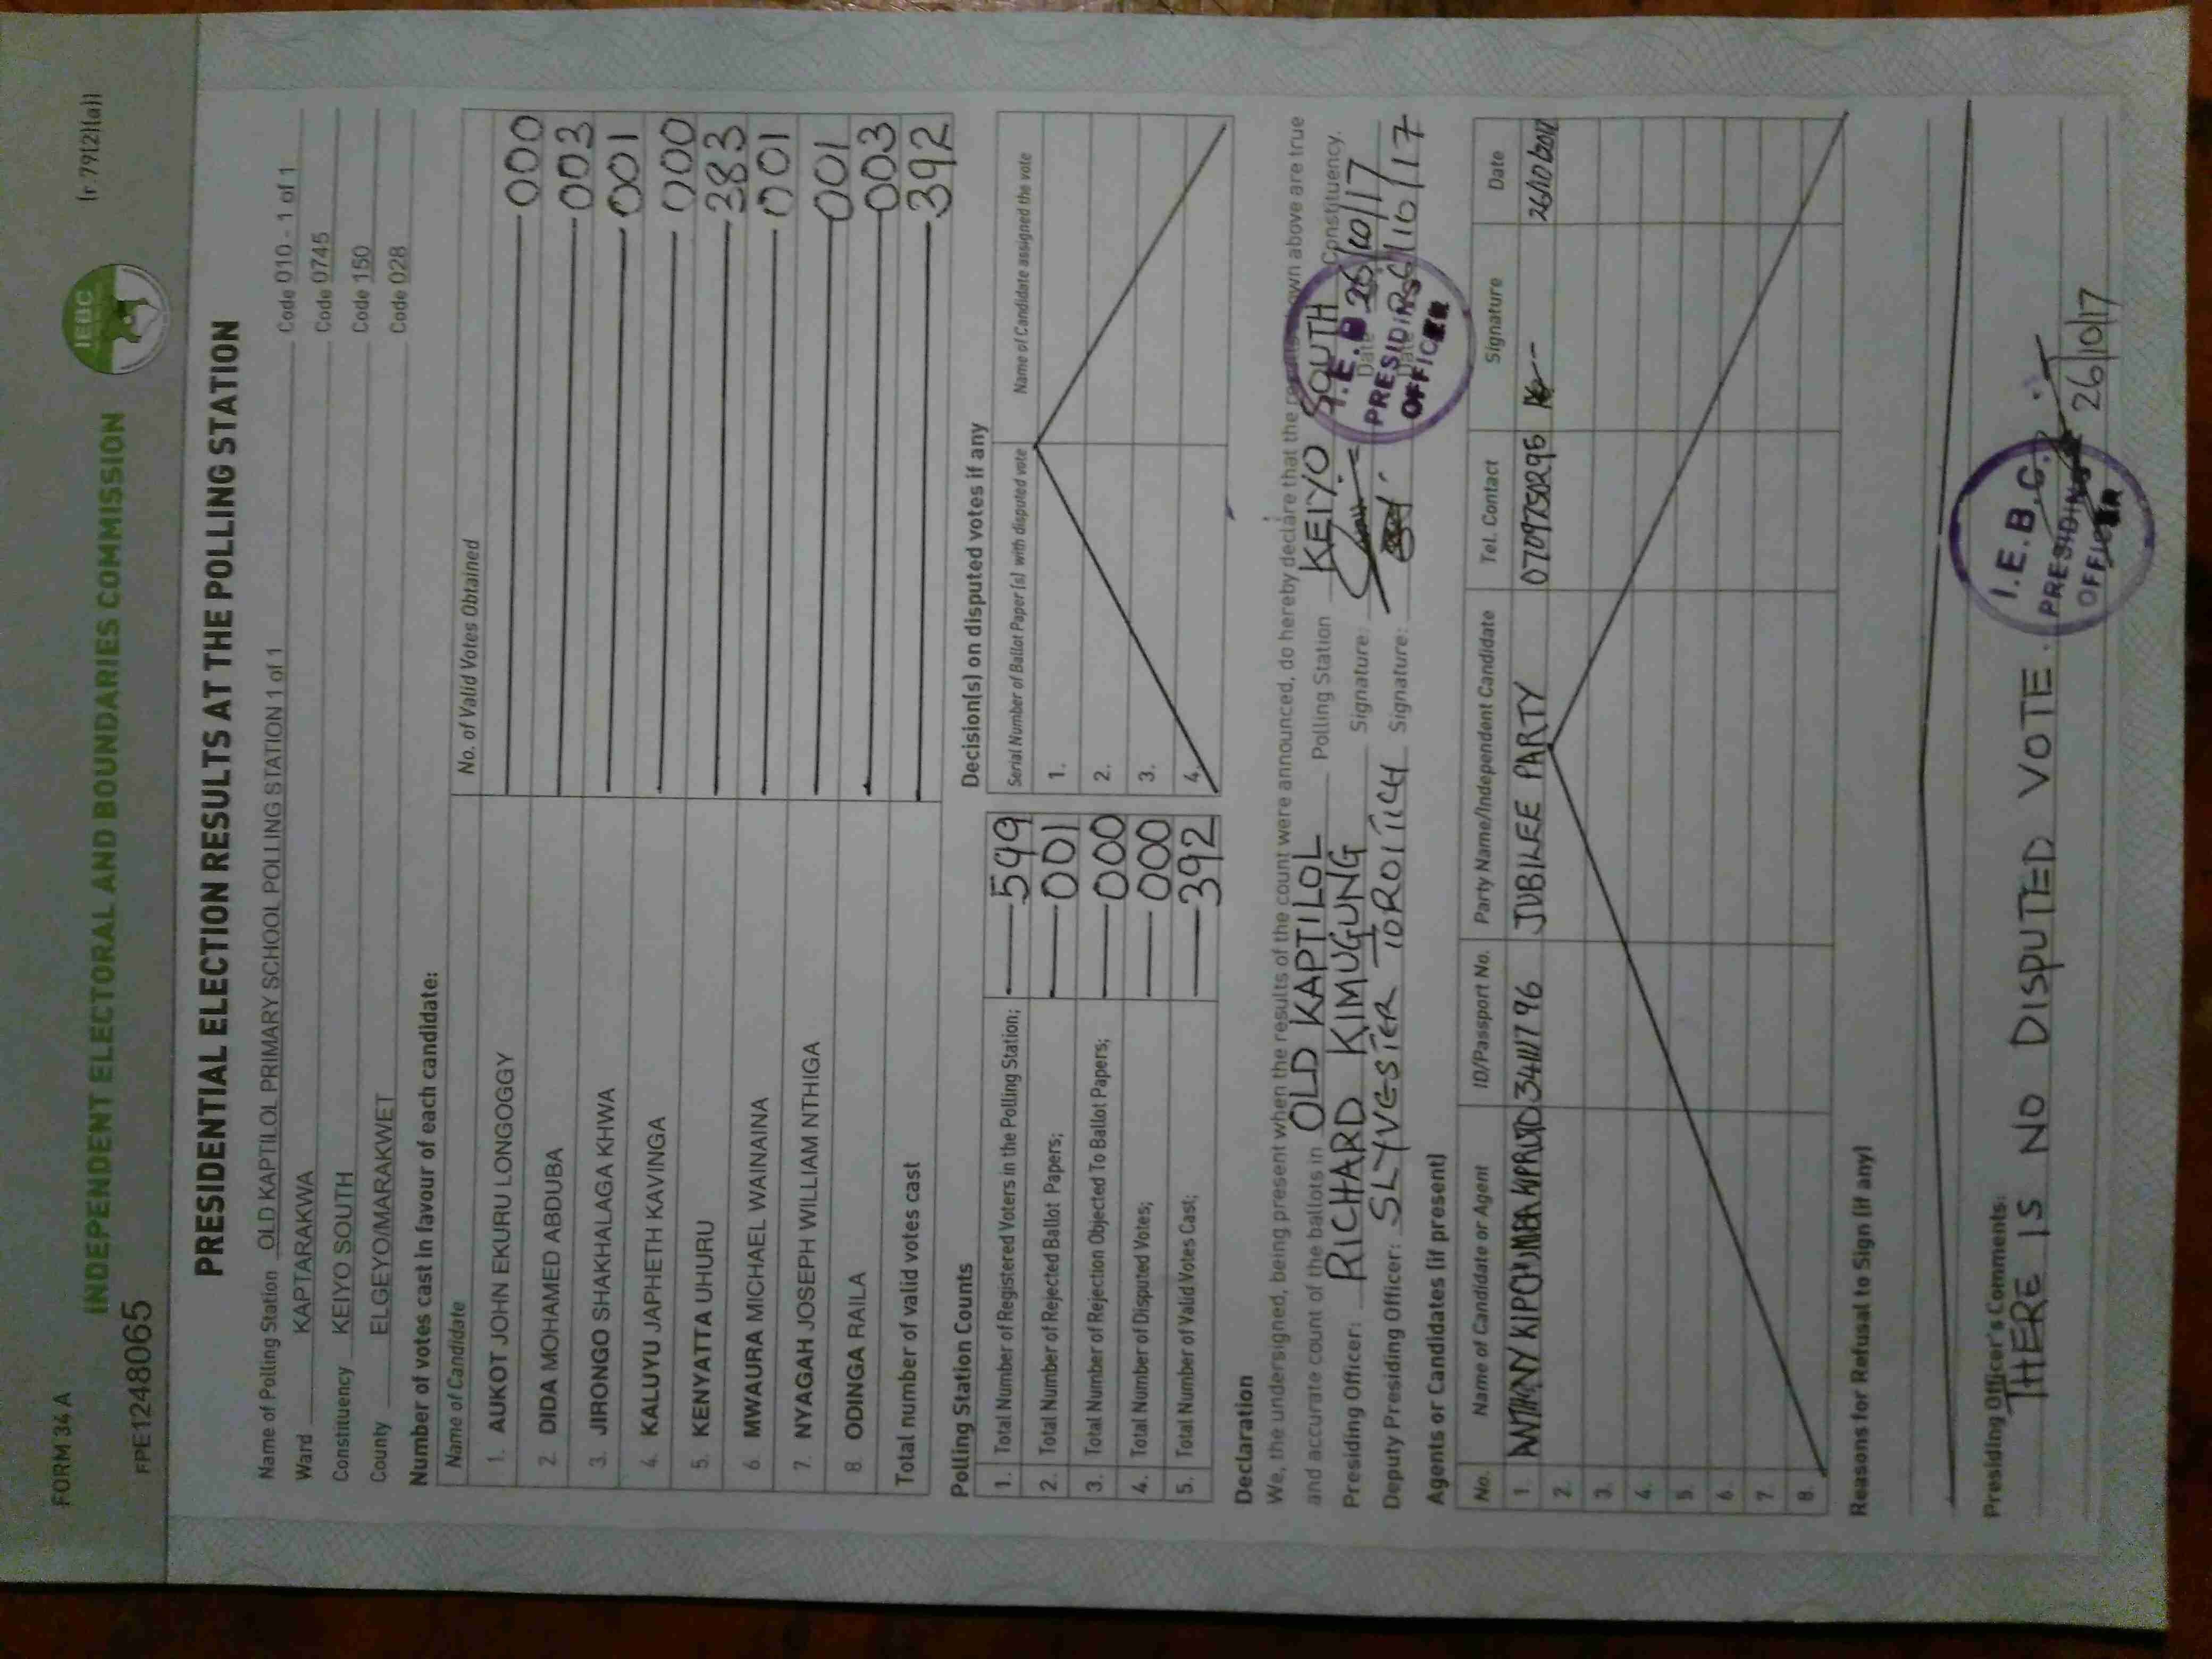 FORM 34 A
INDEPENDENT ELECTORAL AND BOUNDARIES COMMISSION
IEBC
(r.79(2)(a))
FPE1248065
PRESIDENTIAL ELECTION RESULTS AT THE POLLING STATION
Name of Polling Station OLD KAPTILOL PRIMARY SCHOOL POLLING STATION 1 of 1 Code 010 - 1 of 1
Ward KAPTARAKWA Code 0745
Constituency KEIYO SOUTH Code 150
County ELGEYO/MARAKWET Code 028
Number of votes cast in favour of each candidate:
Name of Candidate No. of Valid Votes Obtained
1. AUKOT JOHN EKURU LONGOGGY 000
2. DIDA MOHAMED ABDUBA 003
3. JIRONGO SHAKHALAGA KHWA 001
4. KALUYU JAPHETH KAVINGA 000
5. KENYATTA UHURU 383
6. MWAURA MICHAEL WAINAINA 001
7. NYAGAH JOSEPH WILLIAM NTHIGA 001
8. ODINGA RAILA 003
Total number of valid votes cast 392
Polling Station Counts
1. Total Number of Registered Voters in the Polling Station; 549
2. Total Number of Rejected Ballot Papers; 001
3. Total Number of Rejection Objected To Ballot Papers; 000
4. Total Number of Disputed Votes; 000
5. Total Number of Valid Votes Cast; 392
Decision(s) on disputed votes if any
Serial Number of Ballot Paper (s) with disputed vote Name of Candidate assigned the vote
1.
2.
3.
4.
Declaration
We, the undersigned, being present when the results of the count were announced, do hereby declare that the results shown above are true
and accurate count of the ballots in OLD KAPTILOL Polling Station KEIYO SOUTH Constituency.
Presiding Officer: RICHARD KIMUGUNG Signature: Date 26/10/17
Deputy Presiding Officer: SLYVESTER TOROITICH Signature: Date 26/10/17
I.E.B.C
PRESIDING
OFFICER
Agents or Candidates (if present)
No. Name of Candidate or Agent ID/Passport No. Party Name/Independent Candidate Tel. Contact Signature Date
1. ANTHONY JUBILEE PARTY 0709750295 26/10/2017
2.
3.
4.
5.
6.
7.
8.
Reasons for Refusal to Sign (if any)
Presiding Officer's Comments:
THERE IS NO DISPUTED VOTE.
I.E.B.C.
PRESIDING
OFFICER
26/10/17